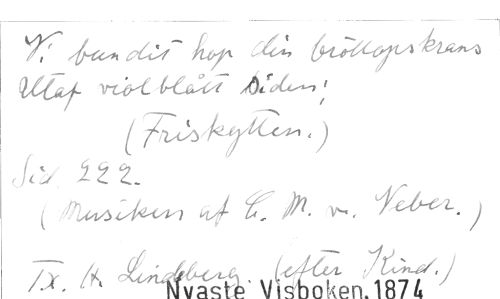 Vi bundit hop din bröllopskrans
Utaf violblått siden!
(Friskytten.)
Sid. 222.
(Musiken af C. M. v. Weber.)
Tx. H. Lindeberg. (efter Kind.)
Nyaste Visboken. 1874